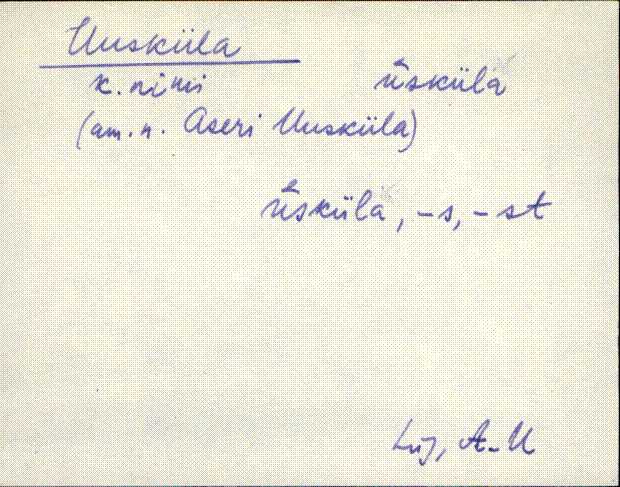 Uusküla
k. nimi ūsküla
(am. n. Aseri Uusküla)
ūsküla, -s, -st
Lüg, A-U